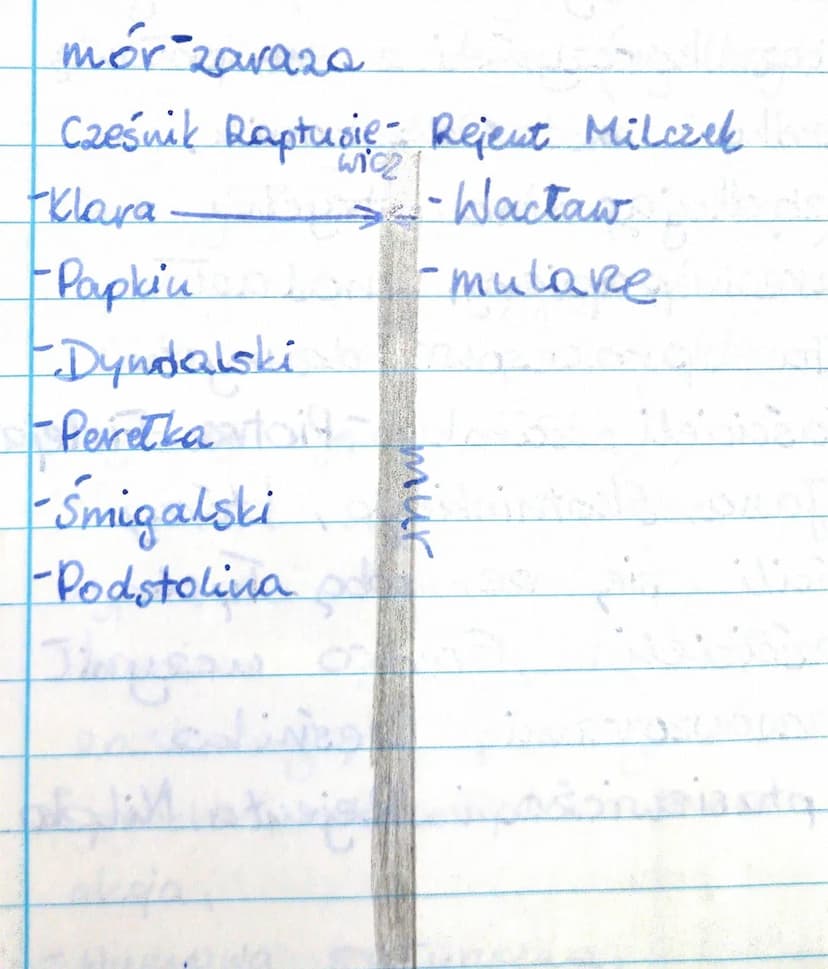 mór - zaraza
Cześnik Raptusie- Rejent Milczek
wicz
- Klara → - Wacław
- Papkin - mularze
- Dyndalski
- Perełka
- Śmigalski
- Podstolina
mur